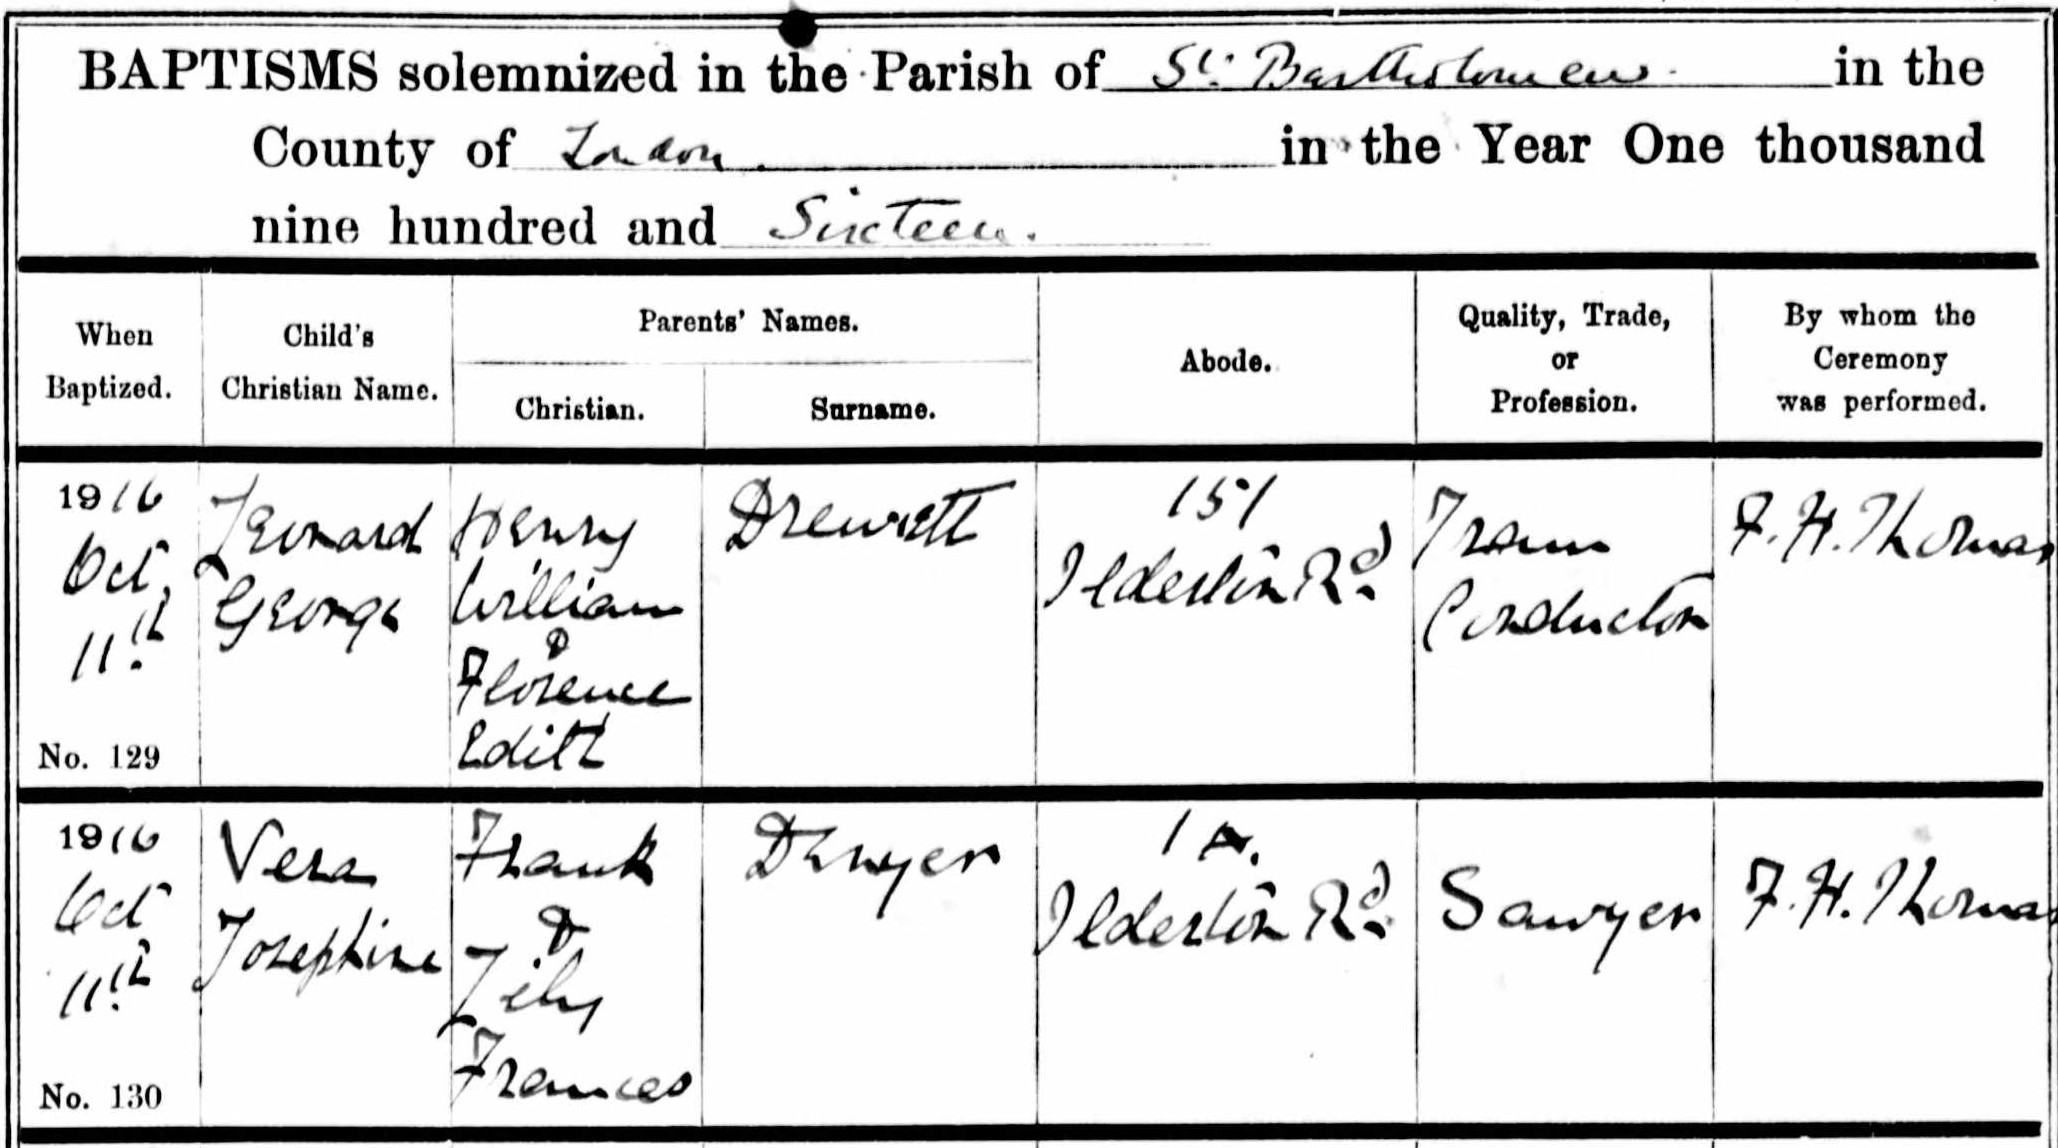 BAPTISMS solemnized in the Parish of St. Bartholomew. in the
County of London. in the Year One thousand
nine hundred and Sixteen.
When Baptized.
Child's Christian Name.
Parents' Names.
Christian.
Surname.
Abode.
Quality, Trade, or Profession.
By whom the Ceremony was performed.
1916
Oct.
11th
No. 129
Leonard
George
Henry
William
&
Florence
Edith
Drewett
151
Ilderton Rd.
Tram
Conductor
F. H. Thomas
1916
Oct
11th
No. 130
Vera
Josephine
Frank
&
Lily
Frances
Dwyer
1A.
Ilderton Rd.
Sawyer
F. H. Thomas